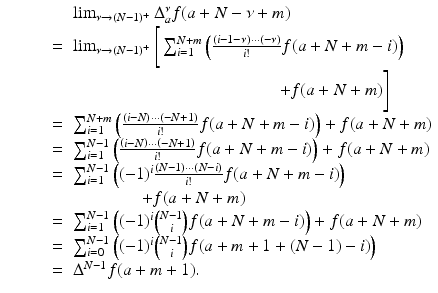 lim_{ν→(N−1)^+} Δ_a^ν f(a + N − ν + m)
= lim_{ν→(N−1)^+} [ ∑_{i=1}^{N+m} ( \frac{(i−1−ν)⋯(−ν)}{i!} f(a + N + m − i) )
+f(a + N + m) ]
= ∑_{i=1}^{N+m} ( \frac{(i−N)⋯(−N+1)}{i!} f(a + N + m − i) ) + f(a + N + m)
= ∑_{i=1}^{N−1} ( \frac{(i−N)⋯(−N+1)}{i!} f(a + N + m − i) ) + f(a + N + m)
= ∑_{i=1}^{N−1} ( (−1)^i \frac{(N−1)⋯(N−i)}{i!} f(a + N + m − i) )
+f(a + N + m)
= ∑_{i=1}^{N−1} ( (−1)^i \binom{N−1}{i} f(a + N + m − i) ) + f(a + N + m)
= ∑_{i=0}^{N−1} ( (−1)^i \binom{N−1}{i} f(a + m + 1 + (N − 1) − i) )
= Δ^{N−1} f(a + m + 1).